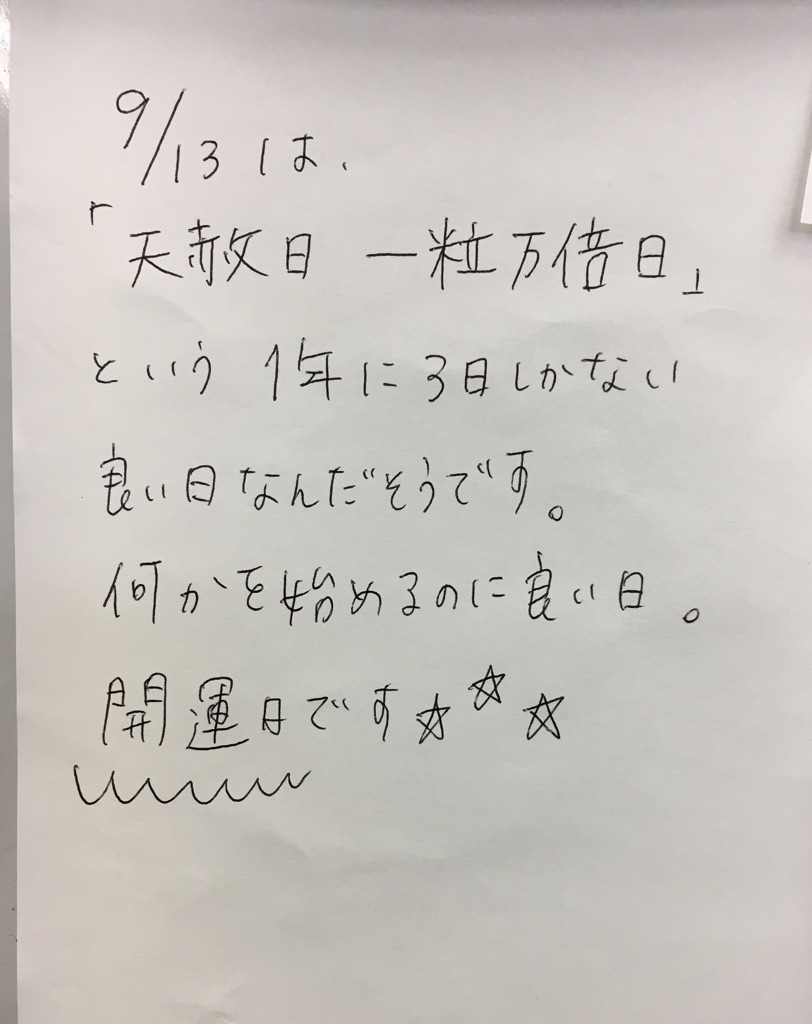 9/13は、
「天赦日 一粒万倍日」
という 1年に3日しかない
良い日なんだそうです。
何かを始めるのに良い日。
開運日です☆☆☆